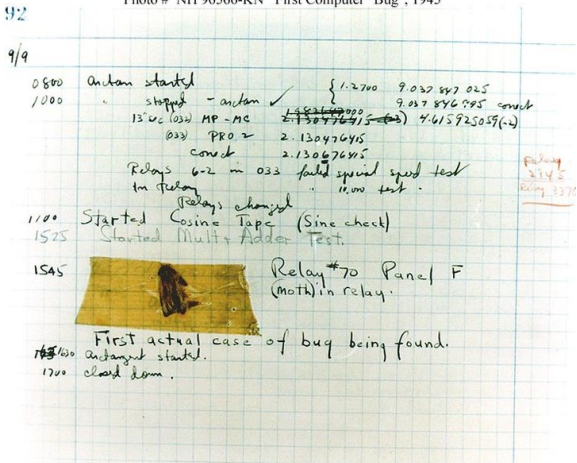 Photo # NH 96566-KN "First Computer "Bug", 1945
92
9/9
0800 antan started
1000 " stopped - antan ✓
{ 1.2700 9.037 847 025
9.037 846 995 conect
13"uc (032) MP - MC 2.130476415 4.615925059(-2)
(033) PRO 2 2.130476415
conect 2.130676415
Relays 6-2 in 033 failed special speed test
in Relay " 10,000 test .
Relay
2145
Relay 3370
Relays changed
1100 Started Cosine Tape (Sine check)
1525 Started Mult + Adder Test.
1545 Relay #70 Panel F
(moth) in relay.
First actual case of bug being found.
1630 antangent started.
1700 closed down.